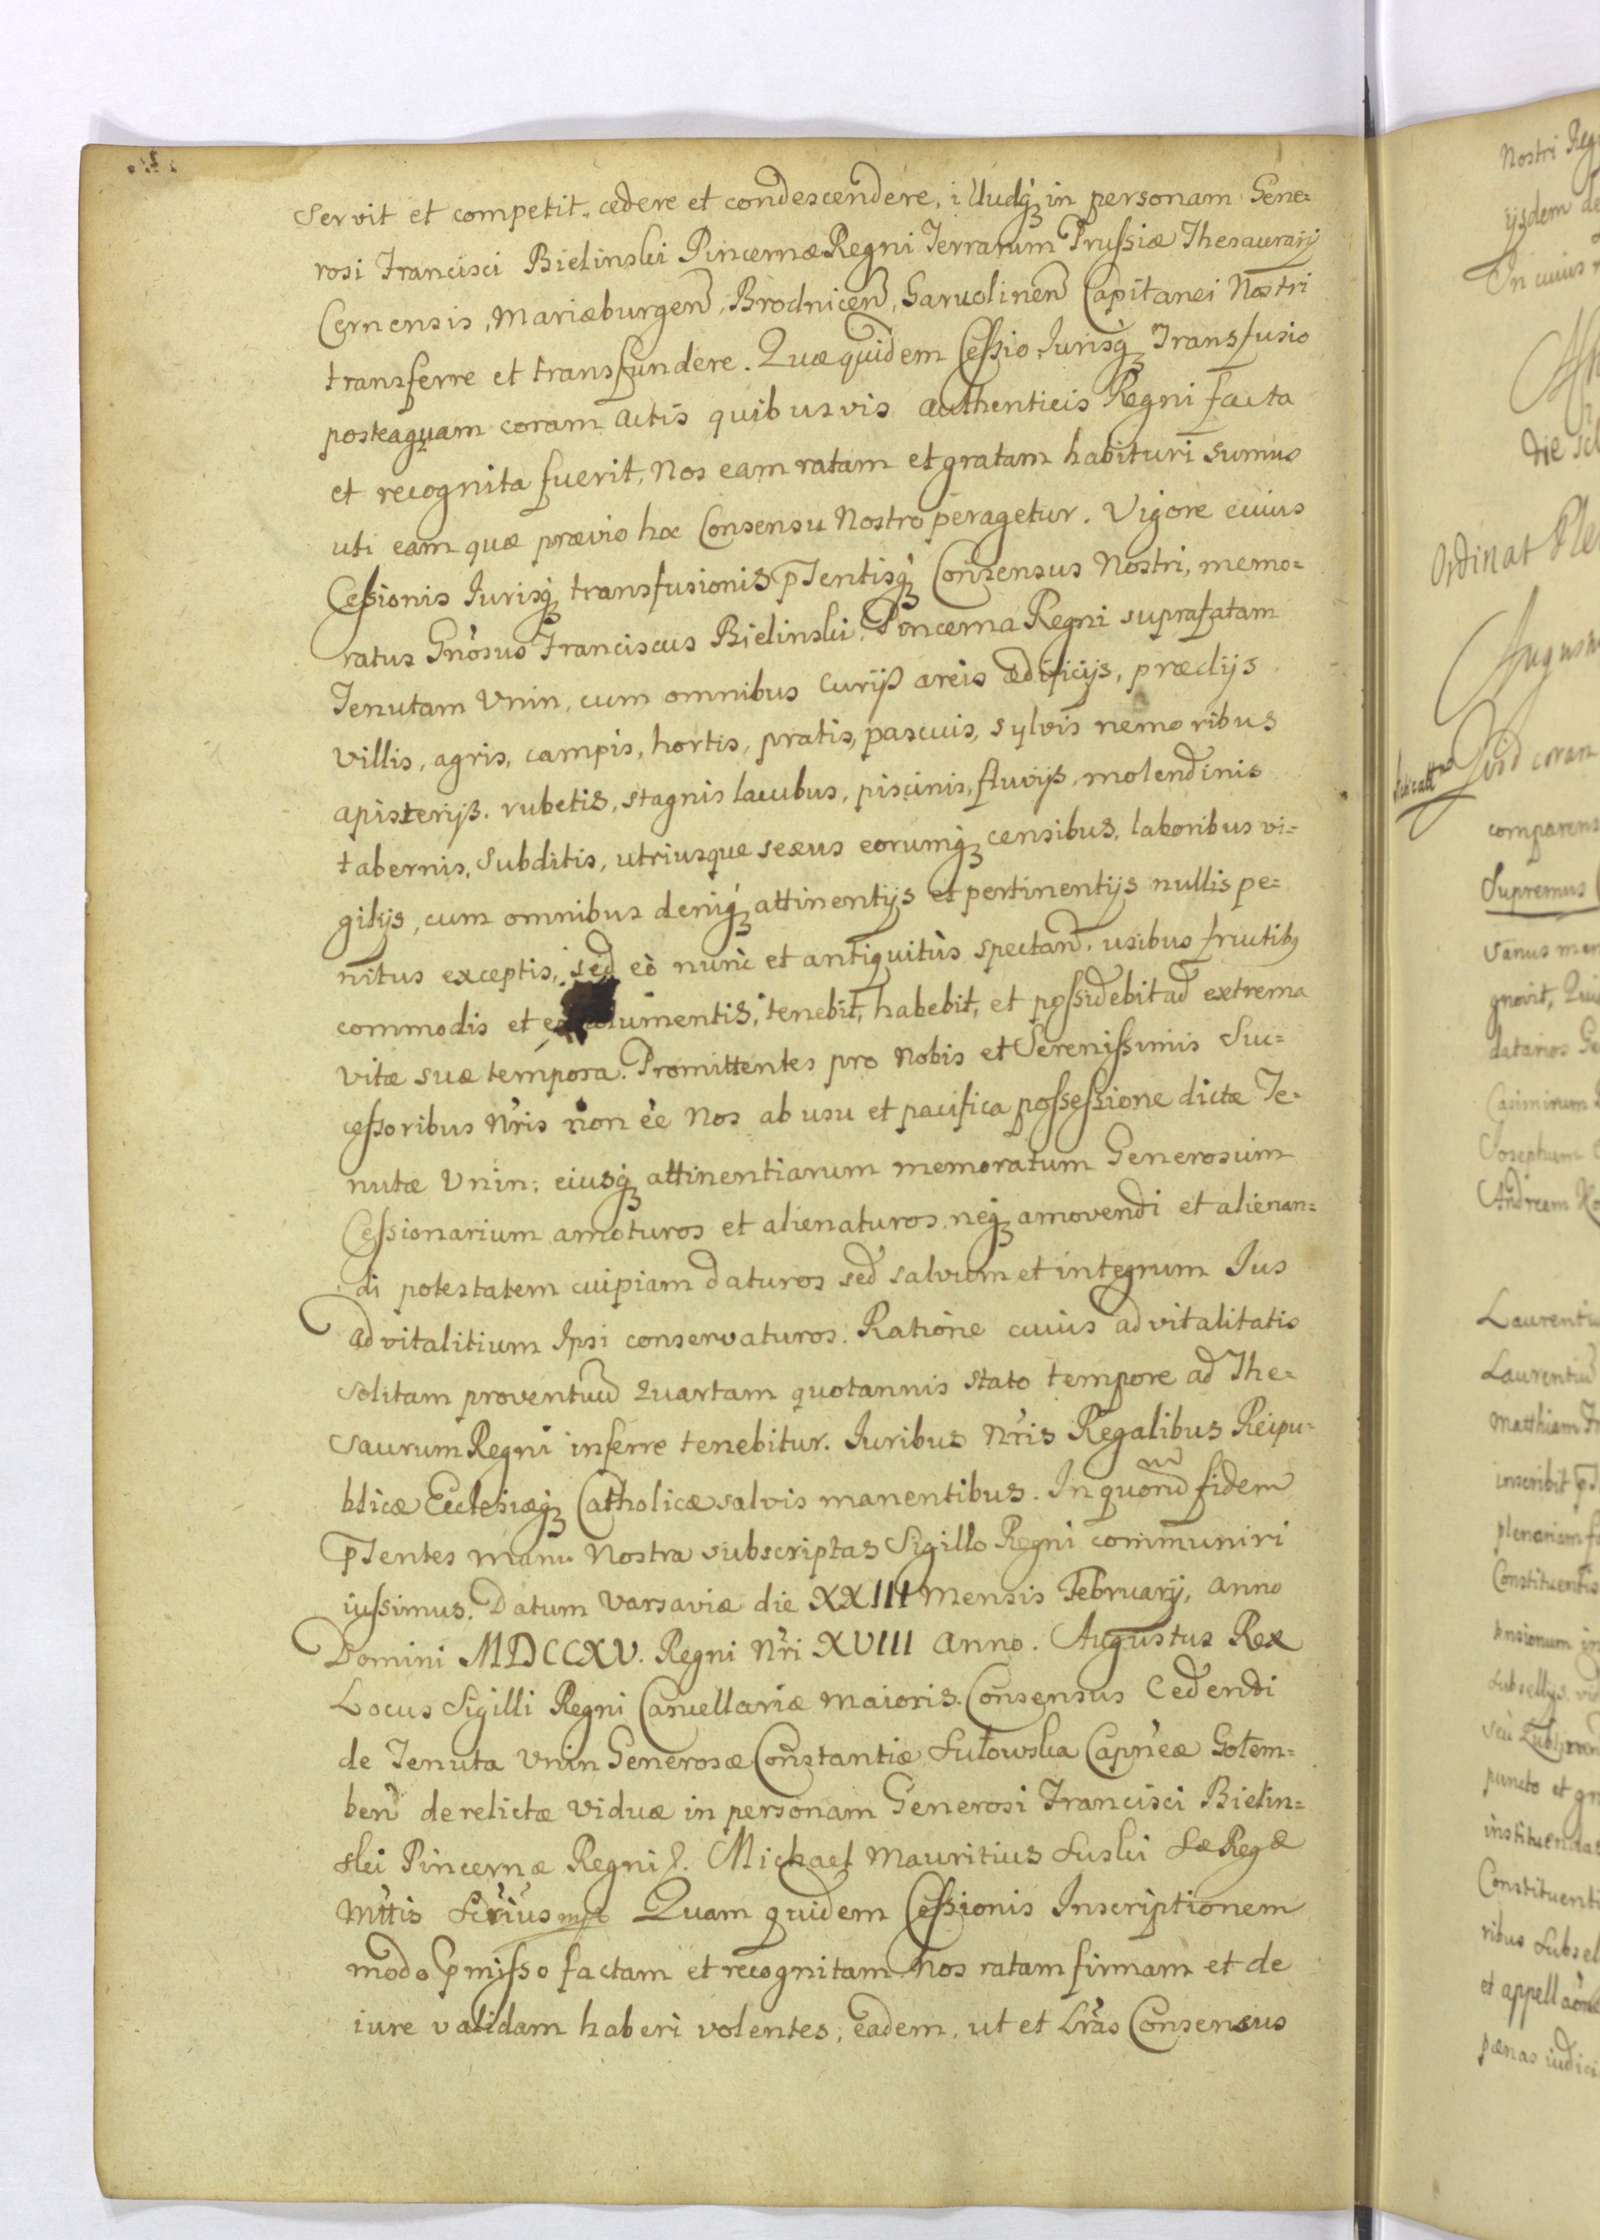 servit et competit, cedere et condescendere, illudq́ in personam Gene=
rosi Francisci Bielinski Pincernæ Regni Terrarum Prussiæ Thesaurarij
Cernensis, Mariæburgen̄, Brodnicen̄, Garvolinen̄ Capitanei Nostri
transferre et transfundere. Quæ quidem Cessio Jurisq́ Transfusio
posteaquam coram Actis quibusvis authenticis Regni facta
et recognita fuerit, Nos eam ratam et gratam habituri sumus
uti eam quæ prævio hoc Consensu Nostro peragetur. Vigore cuius
Cessionis Jurisq́ transfusionis pntentisq́ Consensus Nostri, memo=
ratus Gn̄osus Franciscus Bielinski Pincerna Regni supra fatam
Tenutam Unin, cum omnibus Curijs areis ædificijs, prædijs
villis, agris, campis, hortis, pratis, pascuis, sylvis nemoribus
apisterijs, rubetis, stagnis lacubus, piscinis, fluvijs, molendinis
tabernis, subditis, utriusque sexus eorumq́ censibus, laboribus vi=
gilijs, cum omnibus deniq́ attinentijs et pertinentijs nullis pe=
nitus exceptis, sed eò nunc et antiquitùs spectan̄, usibus fructibʒ
commodis et emolumentis, tenebit, habebit, et possidebit ad extrema
vitæ suæ tempora. Promittentes pro Nobis et Serenissimis Suc=
cessoribus N̄ris non ēe Nos ab usu et pacifica possessione dictæ Te=
nutæ Unin, eiusq́ attinentiarum memoratum Generosum
Cessionarium amoturos et alienaturos, neq́ amovendi et alienan=
di potestatem cuipiam daturos sed salvum et integrum Jus
advitalitium Ipsi conservaturos. Ratione cuius advitalitatis
solitam proventuū Quartam quotannis stato tempore ad The=
saurum Regni inferre tenebitur. Juribus N̄ris Regalibus Reipu=
blicæ Ecclesiæq́ Catholicæ salvis manentibus. In quorū fidem
pntentes manu Nostra subscriptas Sigillo Regni communiri
iussimus. Datum Varsaviæ die XXIII Mensis Februarij, anno
Domini MDCCXV. Regni N̄ri XVIII anno. Augustus Rex
Locus Sigilli Regni Cancellariæ Maioris. Consensus Cedendi
de Tenuta Unin Generosæ Constantiæ Sułowska Capn̄eæ Gołem=
ben̄ derelictæ viduæ in personam Generosi Francisci Bielin=
ski Pincernæ Regni. Michael Mauritius Suski Sæ Regæ
Mttis Scrius mpp Quam quidem Cessionis Inscriptionem
modo p̄misso factam et recognitam Nos ratam firmam et de
iure validam haberi volentes, eadem, ut et Lrãs Consensus
Nostri
ijsdem
In cuius
die
Ordinat
coram
comparens
Supremus
Casimirum
Josephum
Andream
Laurentiu
Laurentiū
Matthiam
inscribit
plenariam
Constituentis
puncto et
Constituenti
ribus Subsel
pænas